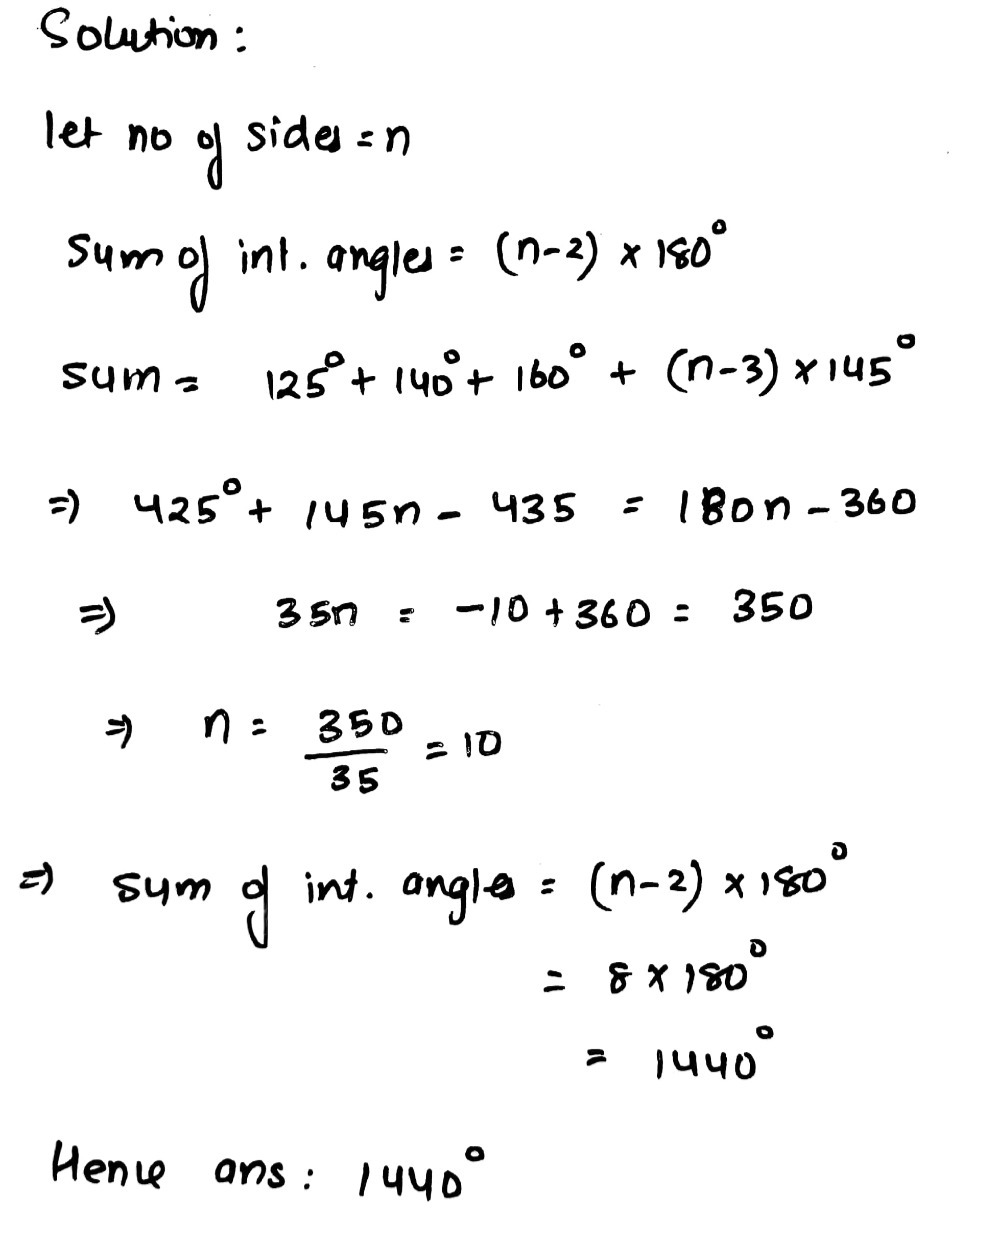 Solution:
let no of sides = n
Sum of int. angles = (n-2) × 180°
sum = 125° + 140° + 160° + (n-3) × 145°
⇒ 425° + 145n - 435 = 180n - 360
⇒ 35n = -10 + 360 = 350
⇒ n = 350/35 = 10
⇒ sum of int. angles = (n-2) × 180°
= 8 × 180°
= 1440°
Hence ans: 1440°